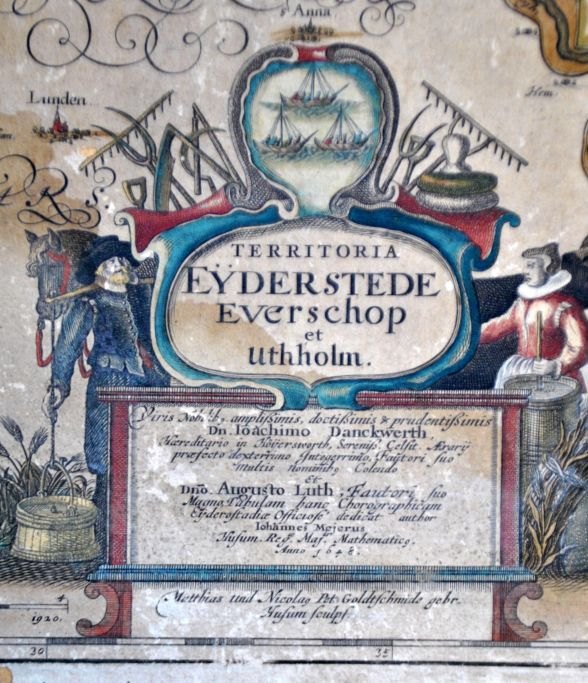 s Anna
Lunden.
Hem.
t R s
TERRITORIA
EŸDERSTEDE
Everschop
et
Uthholm.
Viris Nobil: amplissimis, doctissimis & prudentissimis
Dn̄. Ioachimo Danckwerth,
Hæreditario in Höverswortt, Serenis: Celsit. Ærarÿ
præfecto dexterrimo Integerrimo, Fautori suo
multis nominibg Colendo
Et
Dn̄o. Augusto Luth; Fautori suo
Magno, Tabulam hanc Chorographicam
Eyderostadiæ Officiose dedicat author
Iohannes Mejerus
Husum. Reg. Maj. Mathematicg.
Anno 1648.
Matthias und Nicolag Pet. Goldtschmide gebr.
Husum sculpt.
4
1920.
30
35